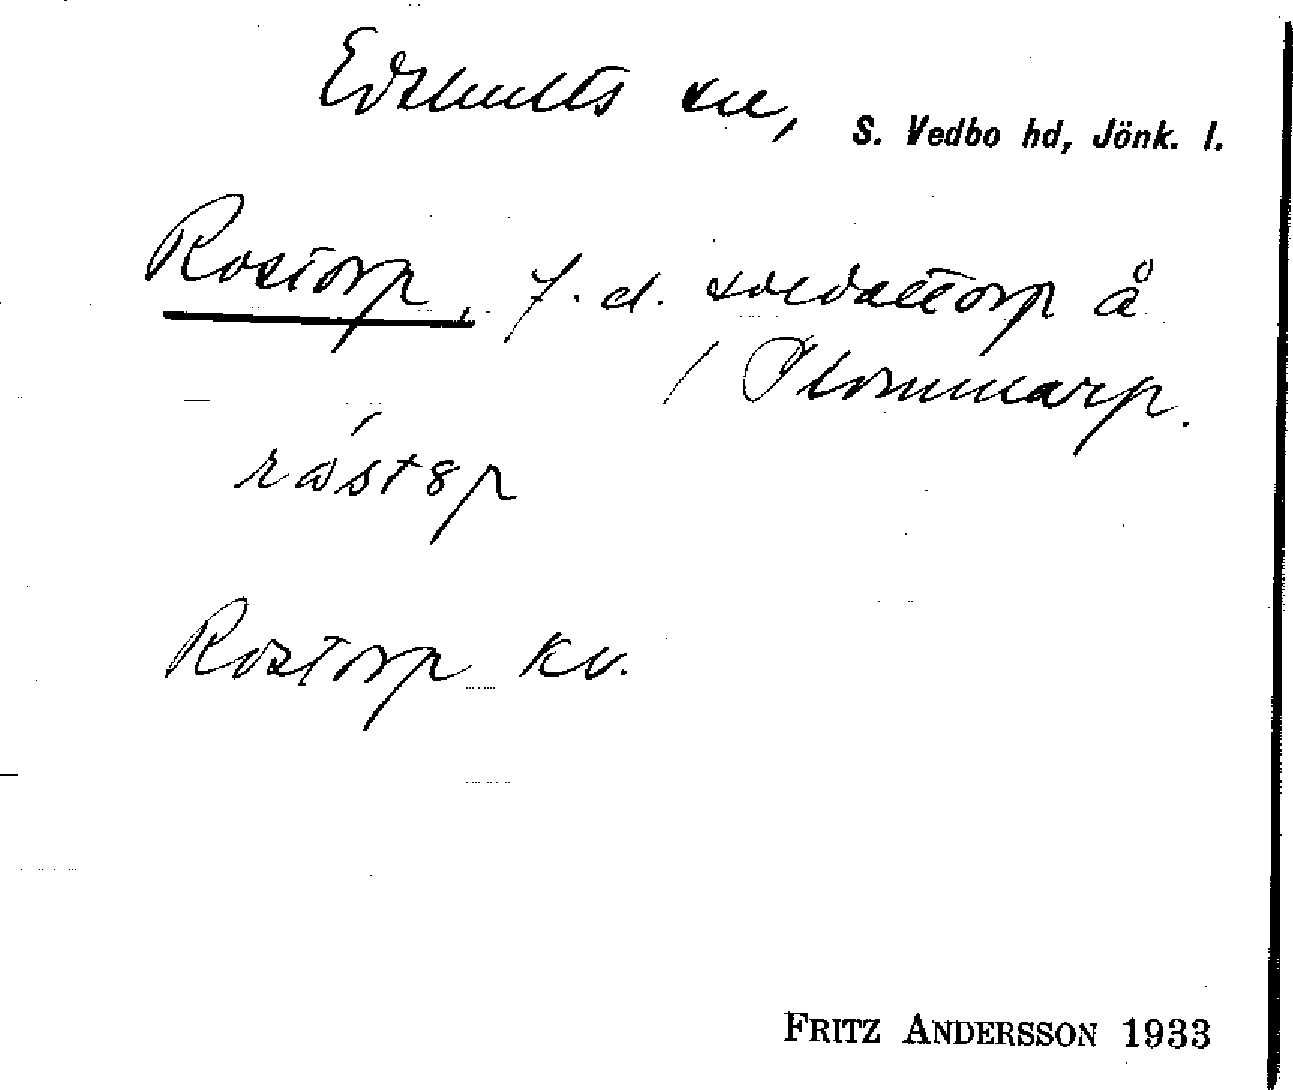 Edshults sn, S. Vedbo hd, Jönk. l.
Rostorp, f.d. soldattorp å
/ Plommarp.
Rostorp kv.
FRITZ ANDERSSON 1933